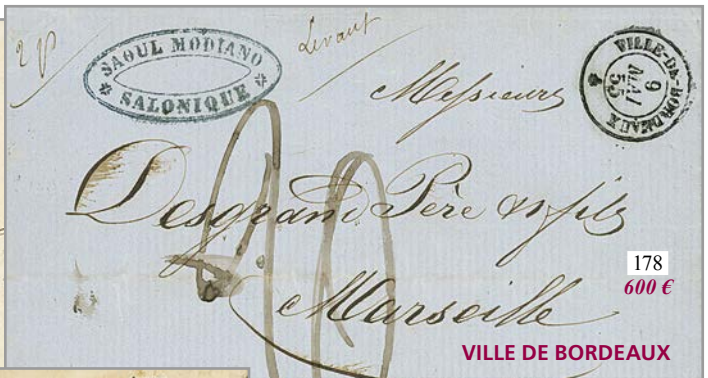 Levant
SAOUL MODIANO
SALONIQUE
VILLE-DE-BORDEAUX
9
MAI
55
Messieurs
Desgrand Père & fils
Marseille
20
178
600 €
VILLE DE BORDEAUX